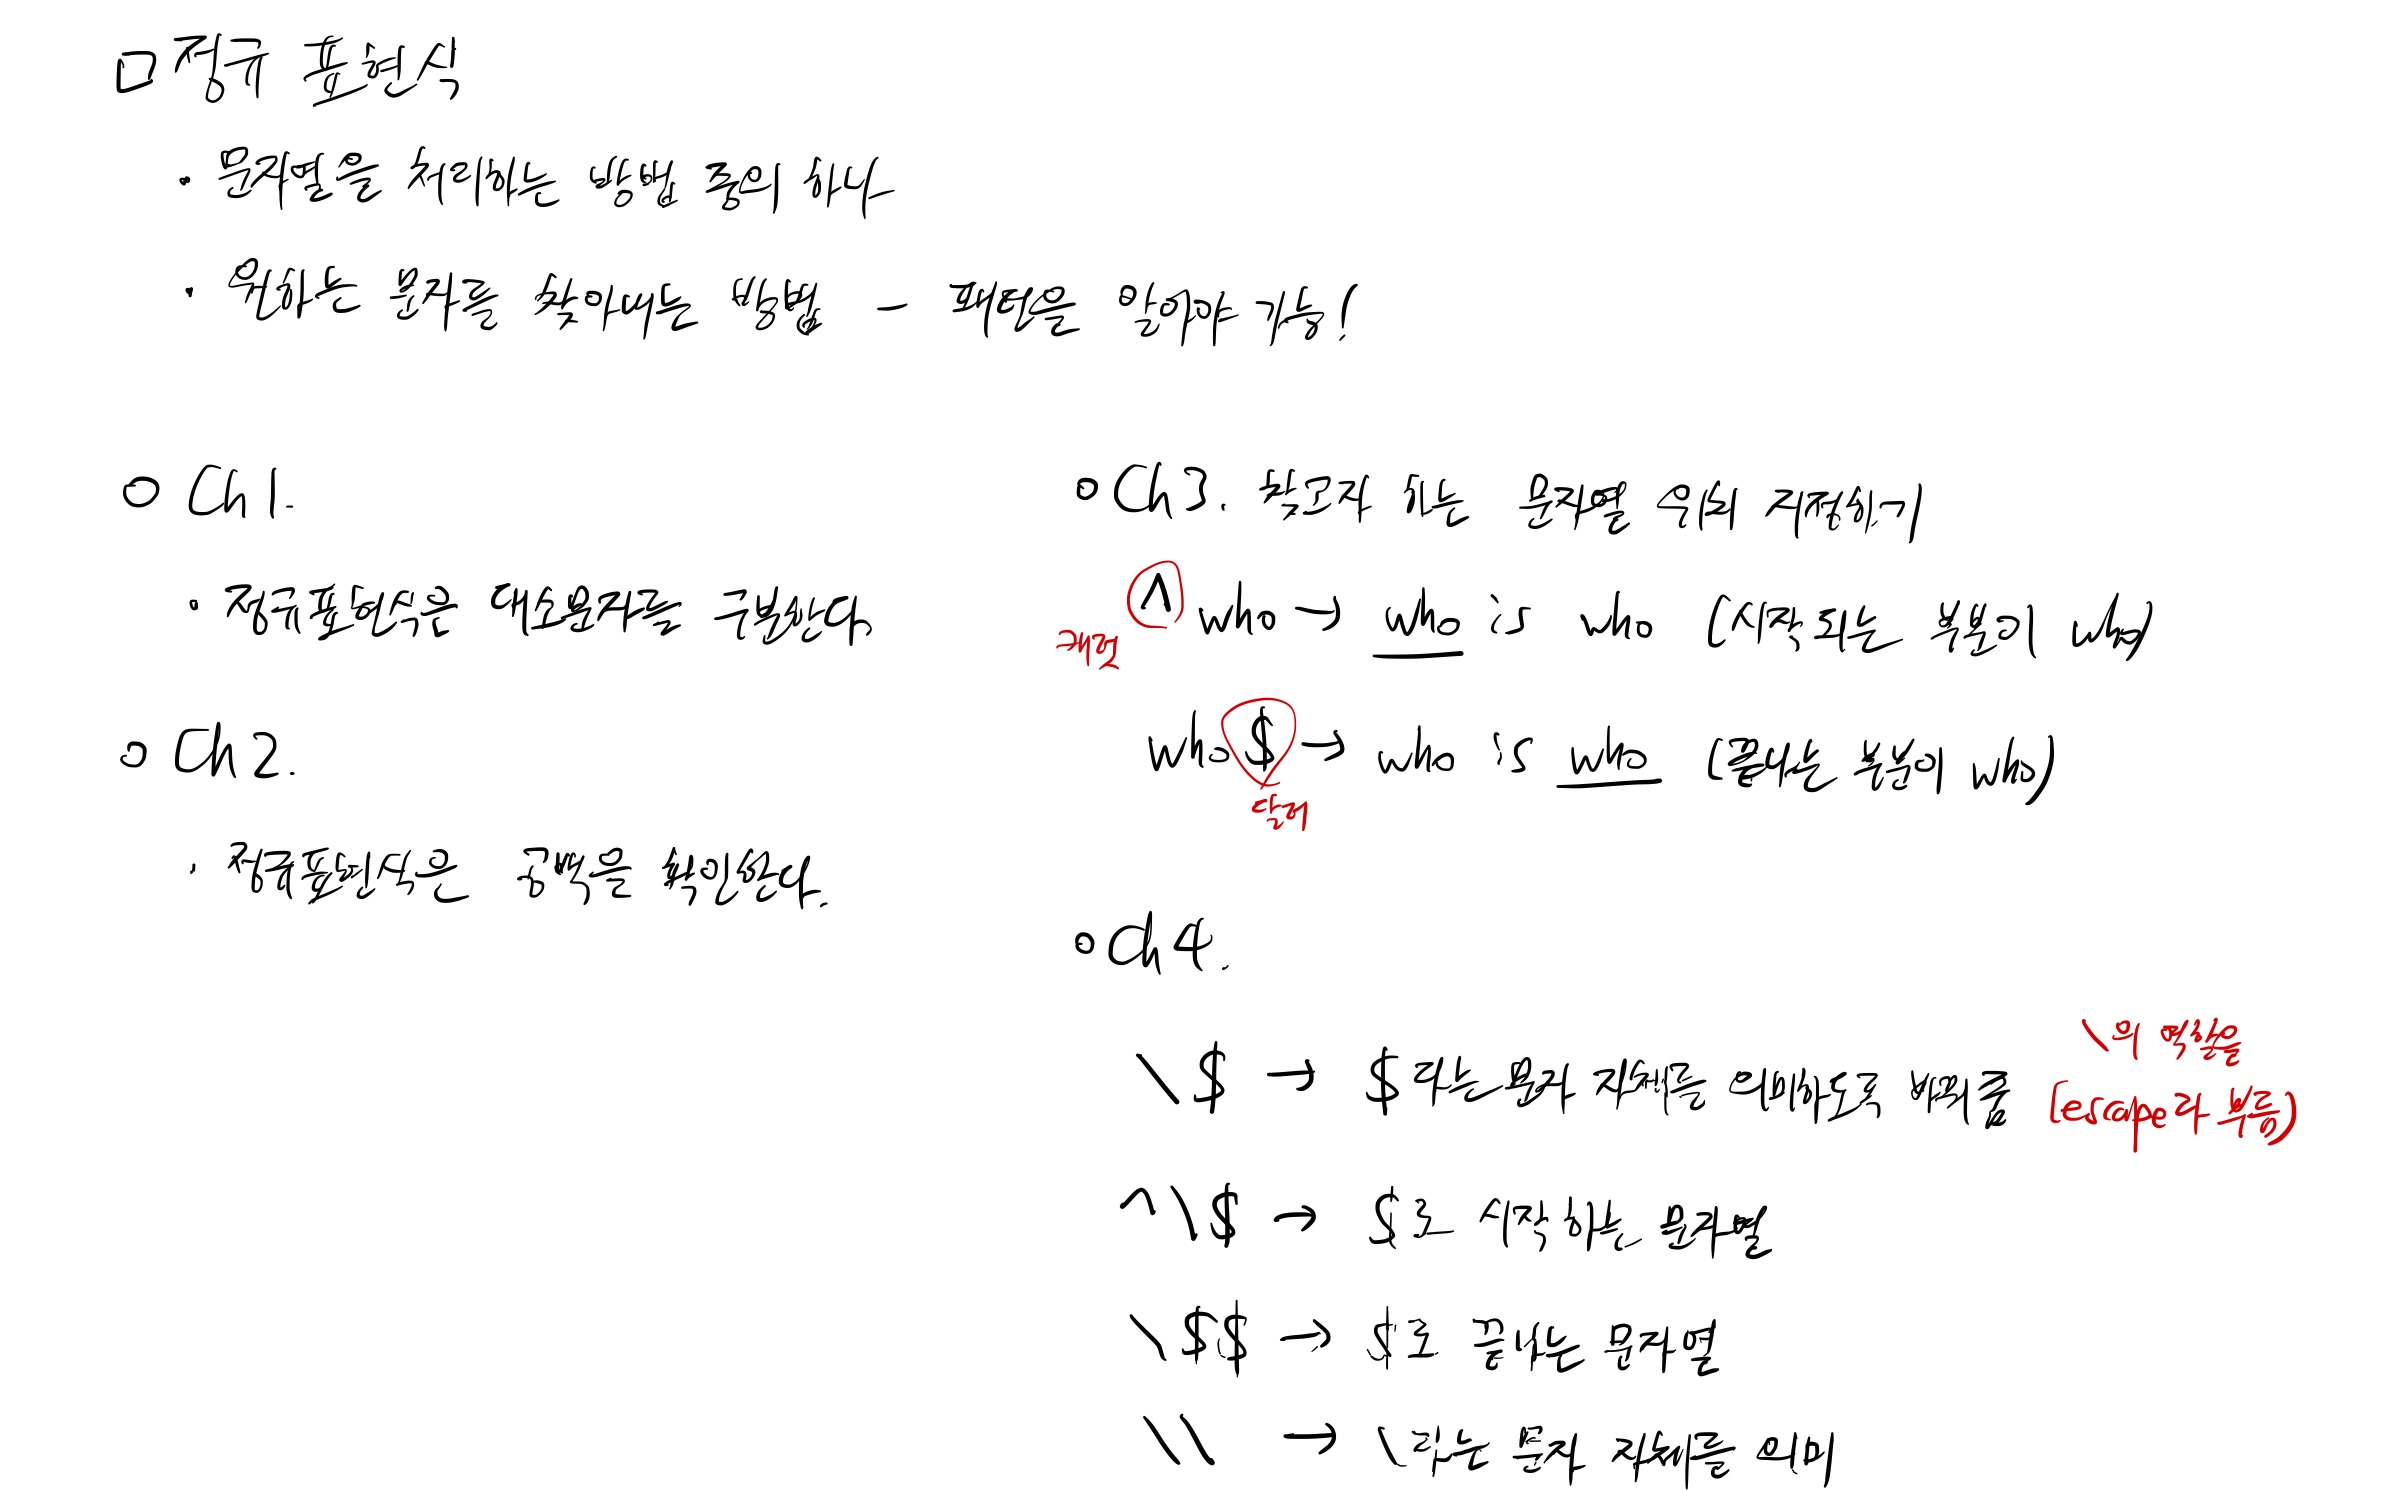 □ 정규 표현식
· 문자열을 처리하는 방법 중의 하나
· 원하는 문자를 찾아내는 방법 - 패턴을 알아야 가능!
○ Ch1.
· 정규표현식은 대소문자를 구분한다
○ Ch2.
· 정규표현식은 공백을 확인한다.
○ Ch3. 찾고자 하는 문자열 위치 지정하기
^ who → who is who (시작되는 부분이 who)
캐럿
who $ → who is who (끝나는 부분이 who)
달러
○ Ch4.
\의 역할을
\$ → $라는 문자 자체를 의미하도록 바꿔줌 (escape라 부름)
^\$ → $로 시작하는 문자열
\$$ → $로 끝나는 문자열
\\ → \라는 문자 자체를 의미